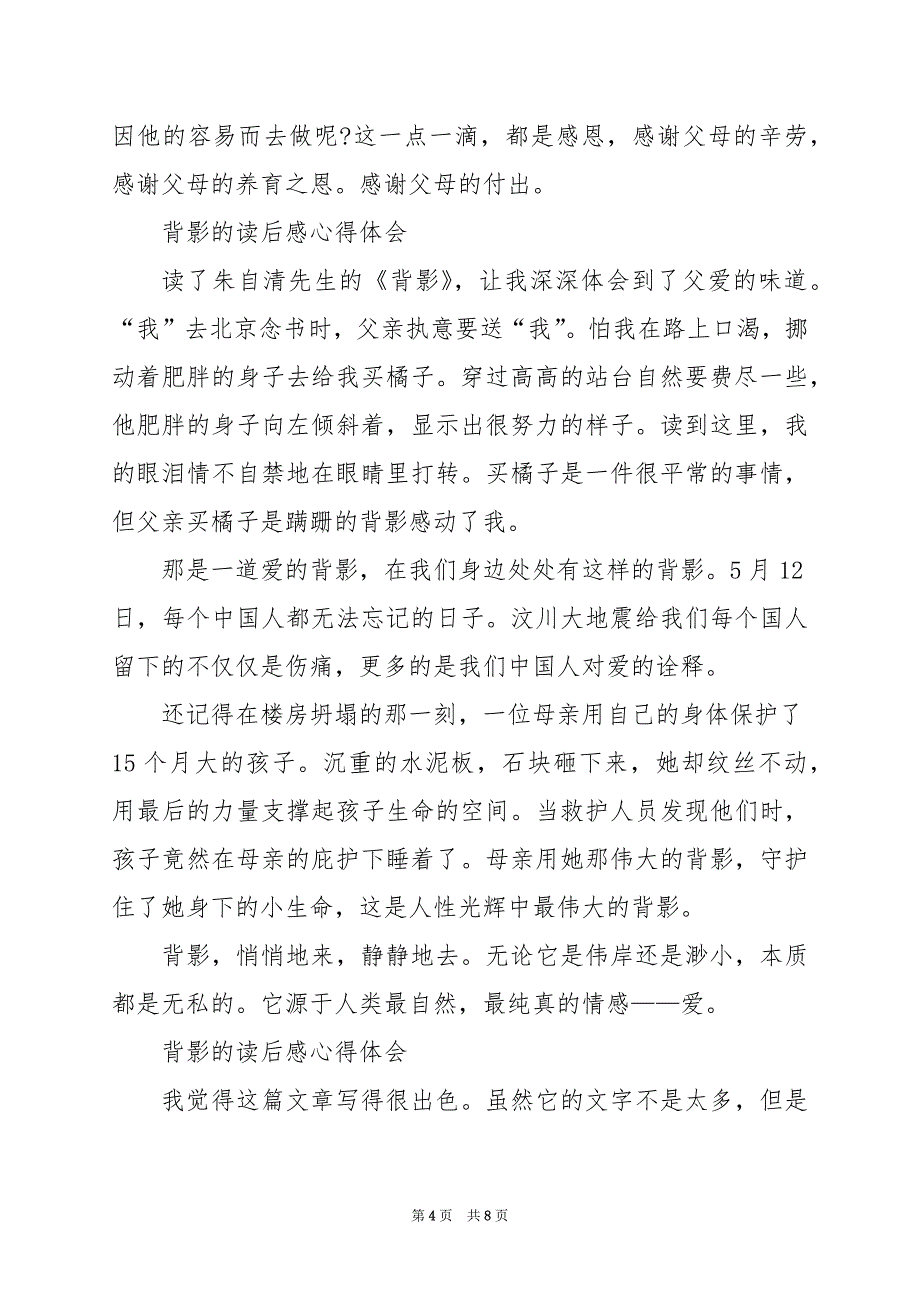 因他的容易而去做呢?这一点一滴，都是感恩，感谢父母的辛劳，
感谢父母的养育之恩。感谢父母的付出。
背影的读后感心得体会
读了朱自清先生的《背影》，让我深深体会到了父爱的味道。
“我”去北京念书时，父亲执意要送“我”。怕我在路上口渴，挪
动着肥胖的身子去给我买橘子。穿过高高的站台自然要费尽一些，
他肥胖的身子向左倾斜着，显示出很努力的样子。读到这里，我
的眼泪情不自禁地在眼睛里打转。买橘子是一件很平常的事情，
但父亲买橘子是蹒跚的背影感动了我。
那是一道爱的背影，在我们身边处处有这样的背影。5 月 12
日，每个中国人都无法忘记的日子。汶川大地震给我们每个国人
留下的不仅仅是伤痛，更多的是我们中国人对爱的诠释。
还记得在楼房坍塌的那一刻，一位母亲用自己的身体保护了
15 个月大的孩子。沉重的水泥板，石块砸下来，她却纹丝不动，
用最后的力量支撑起孩子生命的空间。当救护人员发现他们时，
孩子竟然在母亲的庇护下睡着了。母亲用她那伟大的背影，守护
住了她身下的小生命，这是人性光辉中最伟大的背影。
背影，悄悄地来，静静地去。无论它是伟岸还是渺小，本质
都是无私的。它源于人类最自然，最纯真的情感——爱。
背影的读后感心得体会
我觉得这篇文章写得很出色。虽然它的文字不是太多，但是
第 4 页 共 8 页